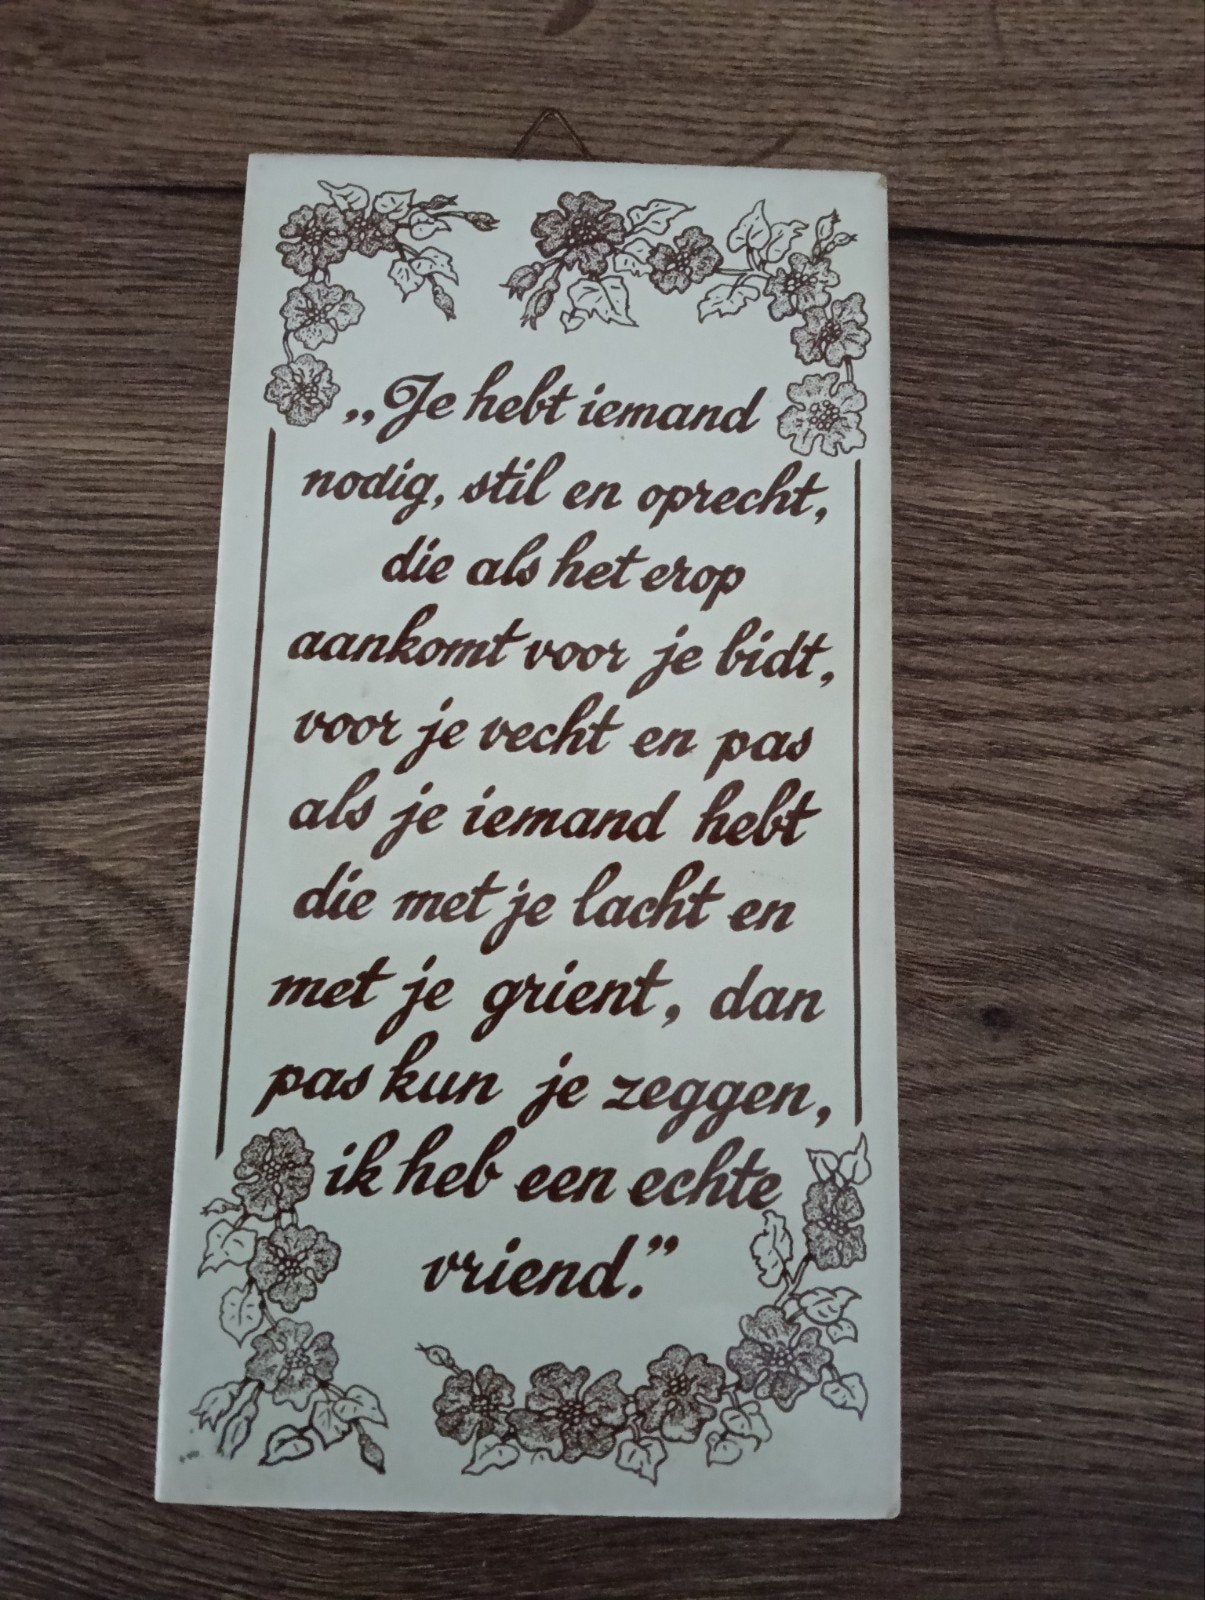 „Je hebt iemand
nodig, stil en oprecht,
die als het erop
aankomt voor je bidt,
voor je vecht en pas
als je iemand hebt
die met je lacht en
met je grient, dan
pas kun je zeggen,
ik heb een echte
vriend.”